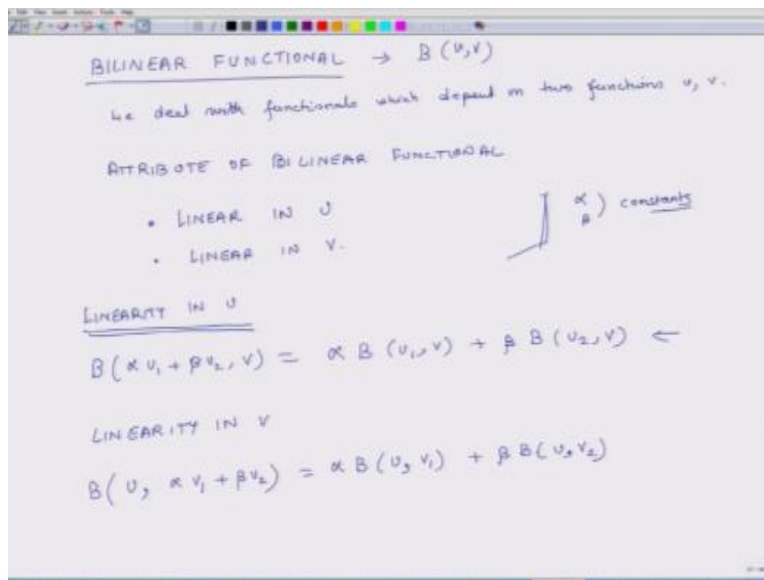 BILINEAR FUNCTIONAL → B (u,v)
We deal with functionals which depend on two functions u, v.
ATTRIBUTE OF BILINEAR FUNCTIONAL
• LINEAR IN U
• LINEAR IN V.
α
β ) constants
LINEARITY IN U
B( α u₁ + β u₂, v) = α B (u₁, v) + β B (u₂, v) ←
LINEARITY IN V
B( u, α v₁ + β v₂) = α B (u, v₁) + β B( u, v₂)